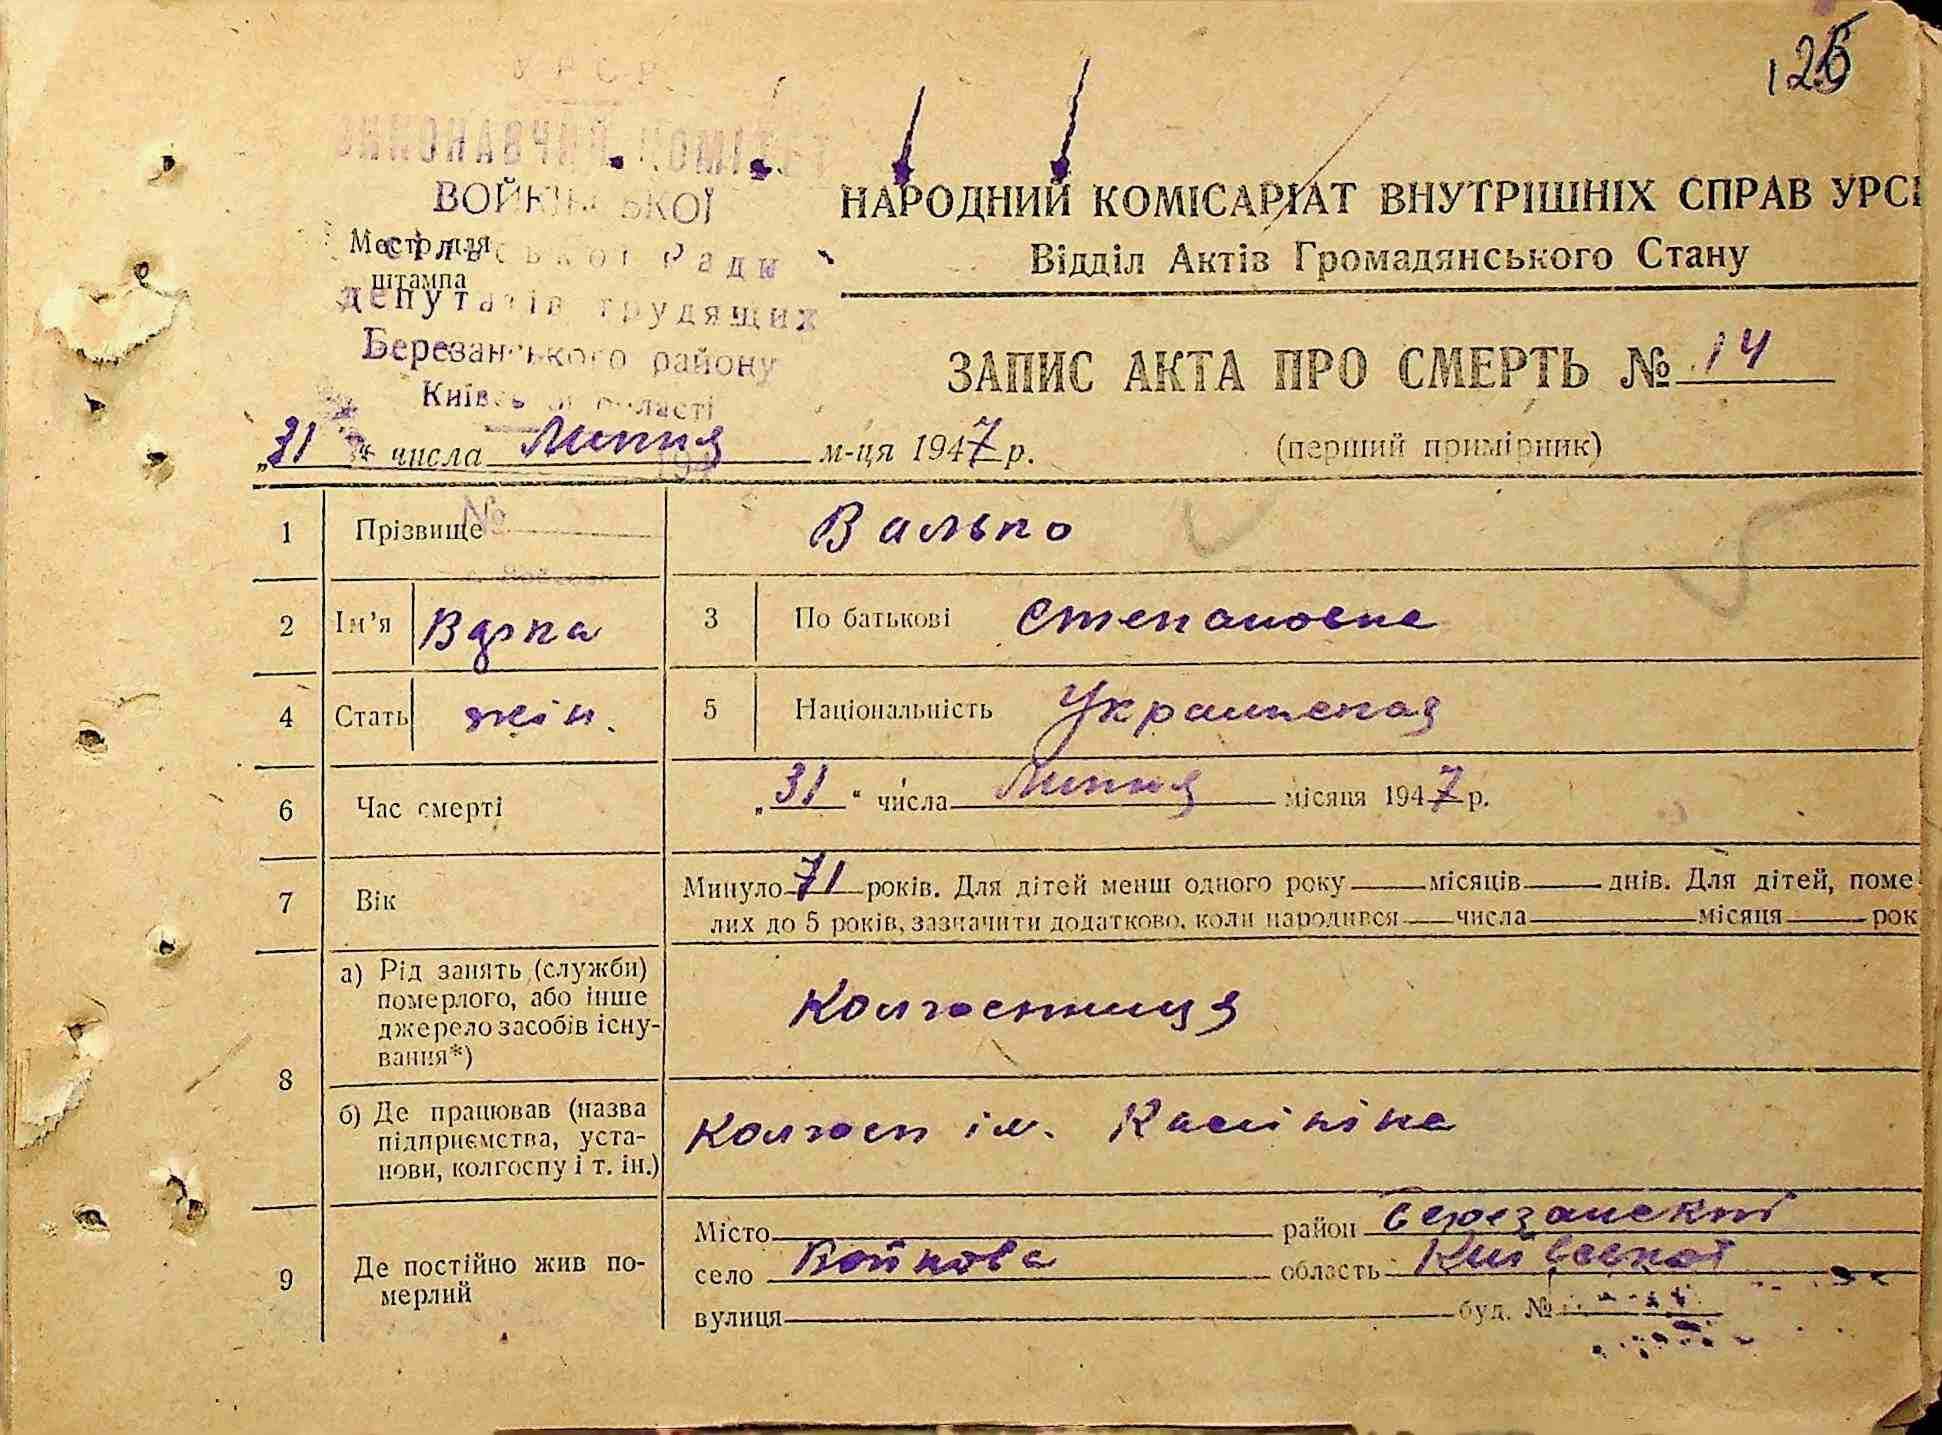 126
УРСР
ВОЙКІВСЬКОЇ
Сільської Ради
депутатів трудящих
Березанського району
Київської області
Место для
штампа
НАРОДНИЙ КОМІСАРІАТ ВНУТРІШНІХ СПРАВ УРСР
Відділ Актів Громадянського Стану
ЗАПИС АКТА ПРО СМЕРТЬ № 14
„31“ числа Липня м-ця 1947 р. (перший примірник)
№
1 Прізвище Валько
2 Ім’я 3 По батькові Степановна
4 Стать жін. 5 Національність Украинская
6 Час смерті „31“ числа Липня місяця 1947 р.
7 Вік Минуло 71 років. Для дітей менш одного року — місяців — днів. Для дітей, поме
лих до 5 років, зазначити додатково, коли народився — числа — місяця — рок
8 а) Рід занять (служби)
померлого, або інше
джерело засобів існу-
вання*) Колгоспниця
б) Де працював (назва
підприємства, уста-
нови, колгоспу і т. ін.) Колгосп ім. Калініна
9 Де постійно жив по-
мерлий
Місто район Березанский
село Войкова область Киевская
вулиця буд. №